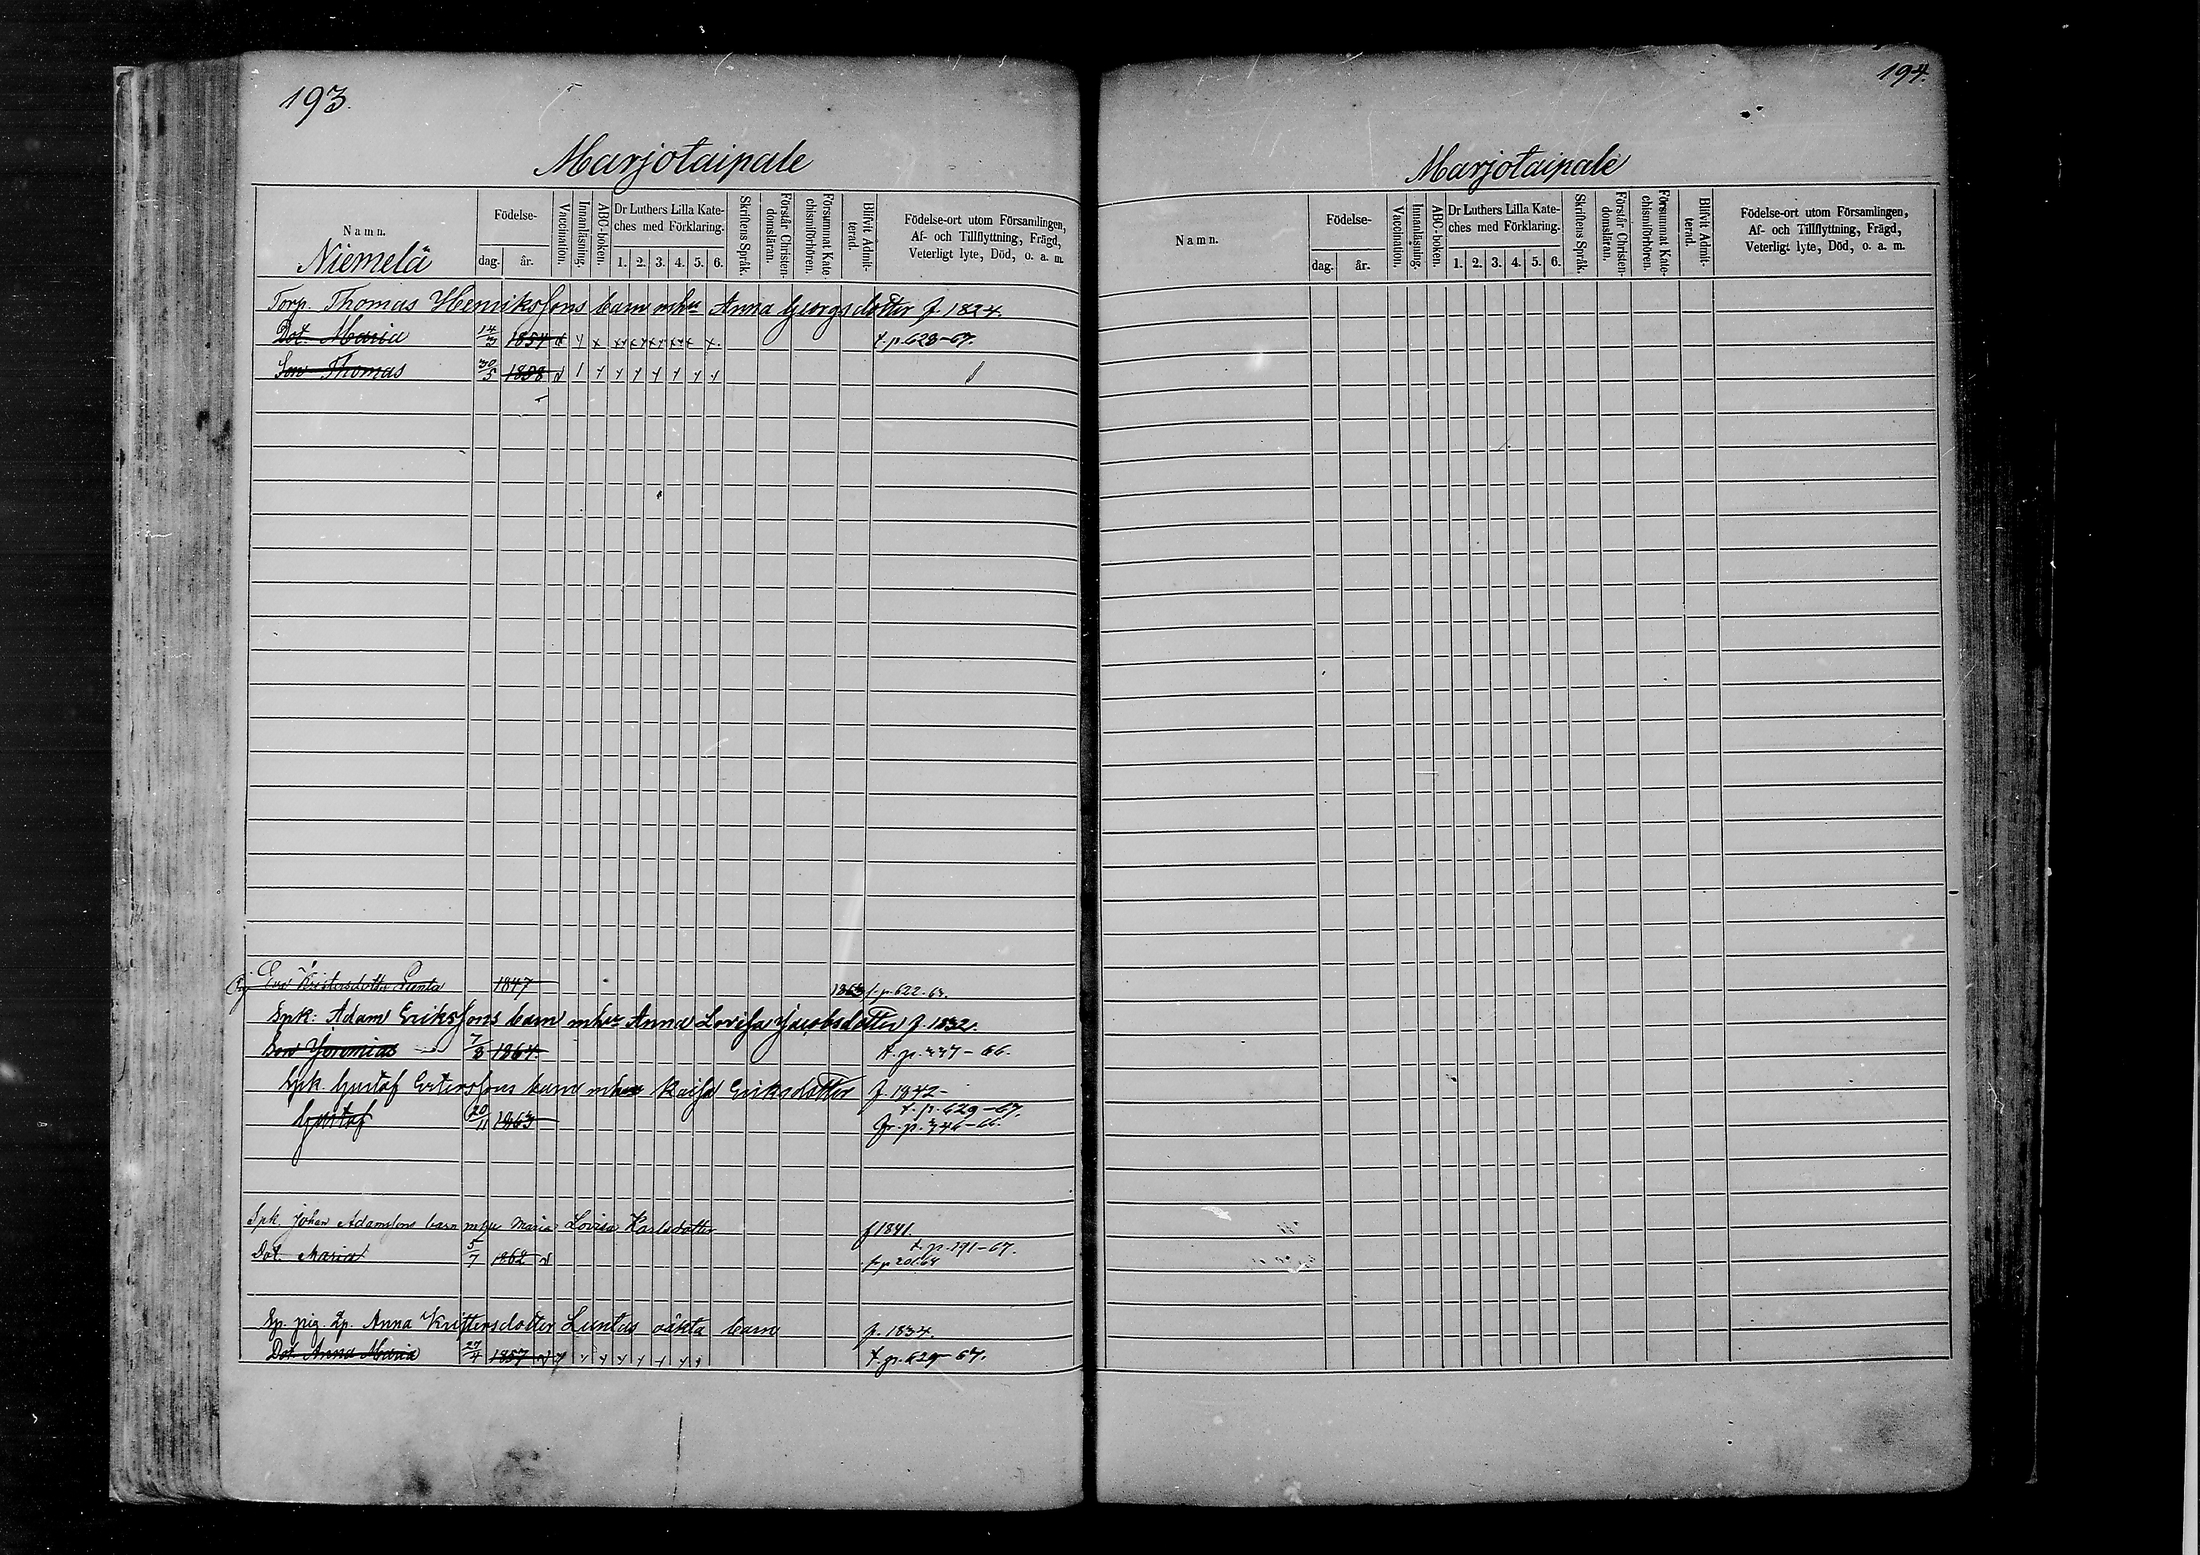 193.
Marjotaipale
Namn.
Niemelä
Födelse-
dag.
år.
Vaccination.
Innanläsning.
ABC-boken.
Dr Luthers Lilla Kate-
ches med Förklaring.
1. 2. 3. 4. 5. 6.
Skriftens Språk.
Förstår Christen-
domsläran.
Försummat Kate-
chismiförhören.
Blifvit Admit-
terad.
Födelse-ort utom Församlingen,
Af- och Tillflyttning, Frägd,
Veterligt lyte, Död, o. a. m.
Torp. Thomas Henrikssons barn mhu Anna Georgsdotter f. 1824
Dot. Maria 14/3 1854 t. p. 628-67.
Son Thomas 30/5 1858
1847 1863 f. p. 622. 63.
Spk: Adam Erikssons barn mhu Anna Lovisa Jacobsdotter f. 1832.
Son Jeremias 7/3 1864 t. p. 337-66.
Spk. Gustaf barn mhu Kaisa Eriksdotter f. 1842-
t. p. 629-67.
Gustaf 20/11 1863 fr. p. 346-66.
Spk. Johan Adamssons barn mhu Maria Lovisa Karlsdotter f 1841.
t. p. 191-67.
Dot. Maria 5/7 1862 fr p 201.64
Sp. pig. Lp. Anna Kristersdotter Luntas oäkta barn f. 1834.
Dot. Anna Maria 27/4 1857 t. p. 629-67.
194.
Marjotaipale
Namn.
Födelse-
dag.
år.
Vaccination.
Innanläsning.
ABC-boken.
Dr Luthers Lilla Kate-
ches med Förklaring.
1. 2. 3. 4. 5. 6.
Skriftens Språk.
Förstår Christen-
domsläran.
Försummat Kate-
chismiförhören.
Blifvit Admit-
terad.
Födelse-ort utom Församlingen,
Af- och Tillflyttning, Frägd,
Veterligt lyte, Död, o. a. m.